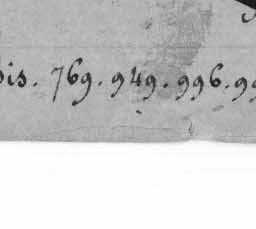 is. 769. 949. 996. 99